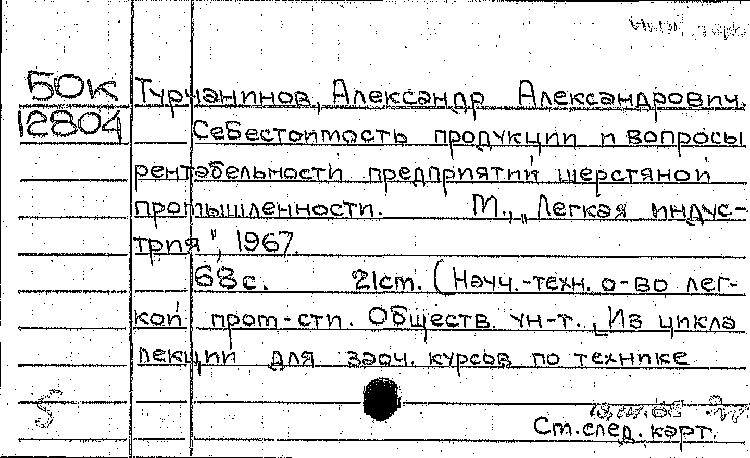 50к Турчанинов, Александр Александрович.
12804 Себестоимость продукции и вопросы
рентабельности предприятий шерстяной
промышленности. М., „Легкая индус-
трия", 1967.
68 с. 21 см. (Науч.-техн. о-во лег-
кой пром-сти. Обществ. ун-т. „Из цикла
лекций для заоч. курсов по технике
Ст. след. карт.